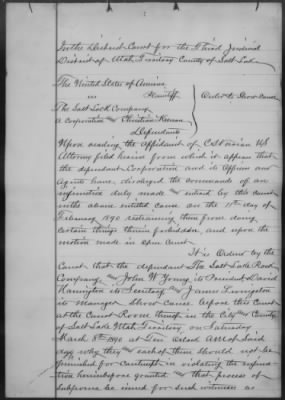 In the District Court for the Third Judicial
District of Utah Territory County of Salt Lake
The United States of America
Plaintiff
vs
Order to Show Cause
The Salt Lake Rock Company
a corporation and Christian
Defendants
Upon reading the affidavit of C S Varian US
Attorney filed herein from which it appears that
the defendant Corporation and its Officers and
Agents have, disobeyed the commands of an
injunction duly made and entered by this court
in the above entitled cause on the 10th day of
February 1890 restraining them from doing
certain things therein forbidden, and upon the
motion made in open court
It is Ordered by the
Court that the defendant The Salt Lake Rock
Company and John W Young its President David
its Secretary and James Livingston
its Manager Show Cause before this Court
at the Court Room thereof in the City and County
of Salt Lake Utah Territory on Saturday
March 8th 1890 at Ten oclock AM of said
day why they and each of them should not be
punished for contempt in violating the injunc-
tion heretofore granted and that process of
subpoena be issued for such witnesses as